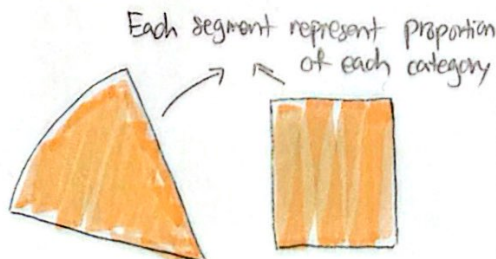 Each segment represent proportion
of each category